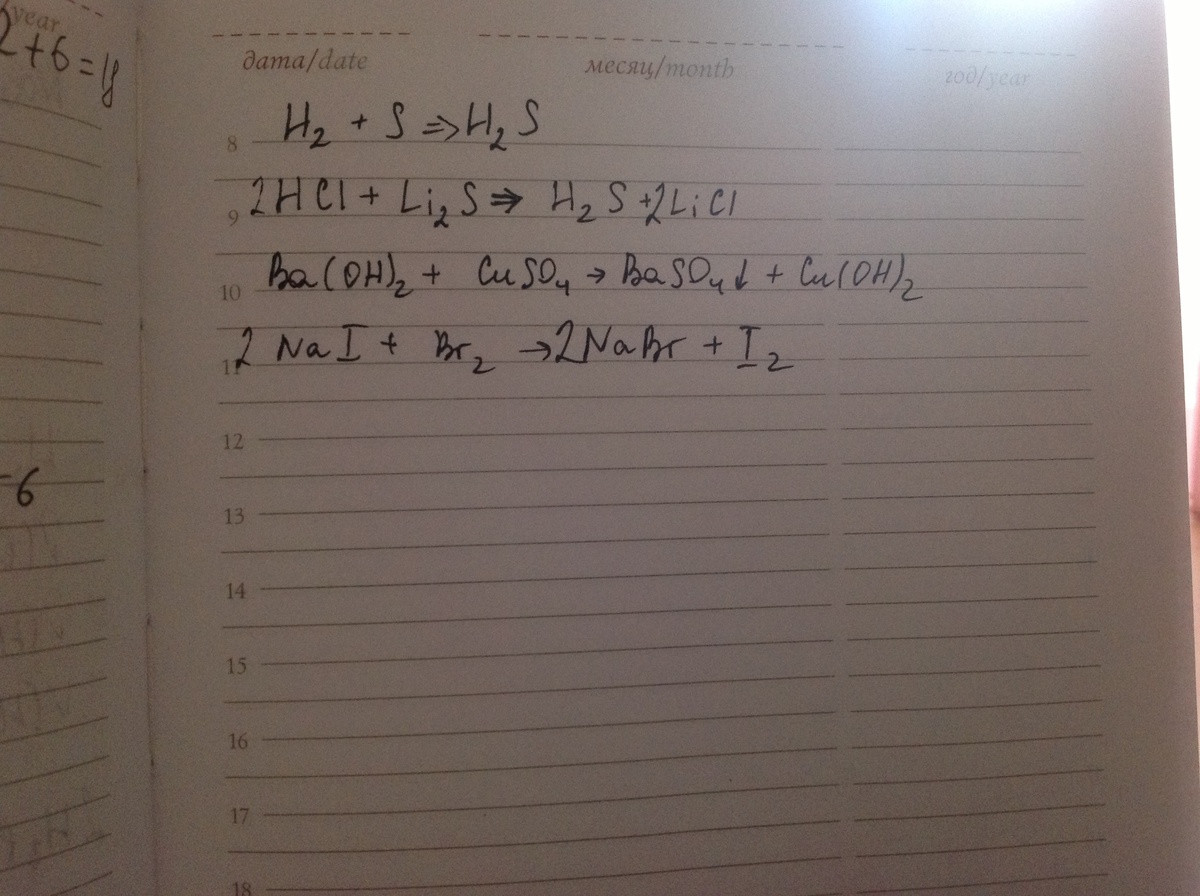 year
2+6=y
дата/date месяц/month год/year
8 H₂ + S ⇒ H₂S
9 2HCl + Li₂S ⇒ H₂S + 2LiCl
10 Ba(OH)₂ + CuSO₄ → BaSO₄↓ + Cu(OH)₂
11 2NaI + Br₂ → 2NaBr + I₂
12
-6
13
14
15
16
17
18